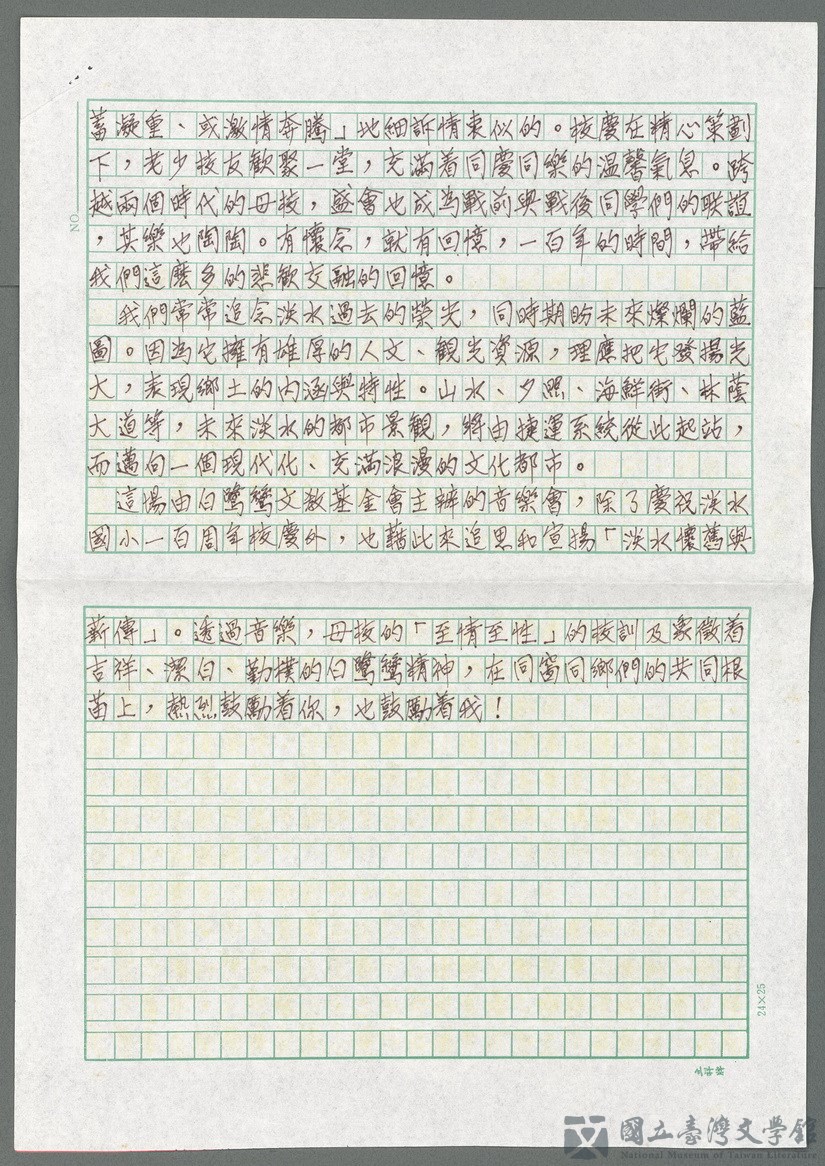 蓄凝重、或激情奔騰」此細訴情衷似的。校慶在精心策劃
下，老少校友歡聚一堂，充滿着同慶同樂的溫馨氣息。跨
越兩個時代的母校，盛會也成為戰前與戰後同學們的聯誼
，其樂也陶陶。有懷念，就有回憶，一百年的時間，帶給
我們這麼多的悲歡交融的回憶。
我們常常追念淡水過去的榮光，同時期盼未來燦爛的藍
圖。因為它擁有雄厚的人文、觀光資源，理應把它發揚光
大，表現鄉土的內涵與特性。山水、夕照、海鮮街、林蔭
大道等，未來淡水的都市景觀，將由捷運系統從此起站，
而邁向一個現代化、充滿浪漫的文化都市。
這場由白鷺鷥文教基金會主辦的音樂會，除了慶祝淡水
國小一百周年校慶外，也藉此來追思和宣揚「淡水懷舊與
薪傳」。透過音樂，母校的「至情至性」的校訓及象徵着
吉祥、潔白、勤樸的白鷺鷥精神，在同窗同鄉們的共同根
苗上，熱烈鼓勵着你，也鼓勵着我！
NO.
24×25
國立臺灣文學館
National Museum of Taiwan Literature